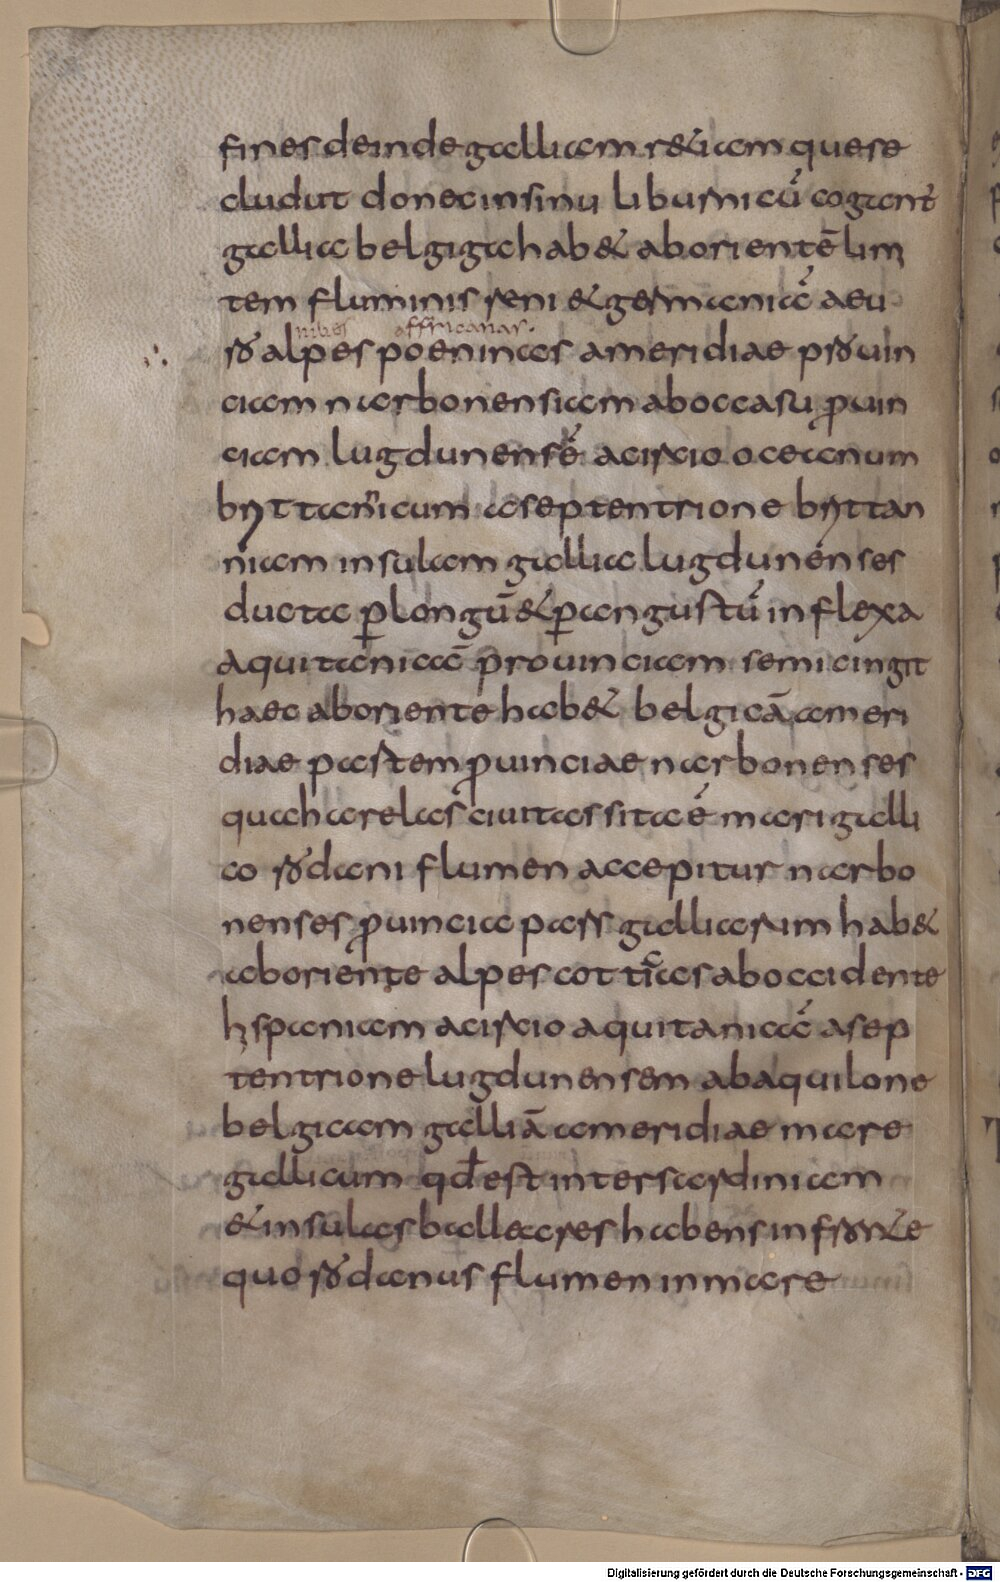 fines deinde galliam r&iam que se
cludut donec in sinu liburnicū cogant
gallia belgiga hab& ab oriente lim
tem fluminis reni & germaniā a eu
nibes affricanas.
ro alpes poeninas a meridiae prouin
ciam narbonensiam ab occasu ꝓuin
ciam lugdunensē a circio oceanum
byttannicum a septentrione byttan
niam insulam gallia lugdunenses
ducta ꝑ longū & ꝑ angustū inflexa
aquitaniaā prouinciam semicingit
haec ab oriente hab& belgicā a meri
diae partem ꝓuinciae narbonenses
qua harelas ciuitas sita ē mari galli
co rodani flumen accepitur narbo
nenses ꝓuincia pars galliarum hab&
ab oriente alpes cottias ab occidente
hispaniam a circio aquitaniaā a sep
tentrione lugdunensem ab aquilone
belgicam galliā a meridiae mare
gallicum qđ est inter sardiniam
& insulas balleares habens in fron&e
quo rodanus flumen in mare
Digitalisierung gefördert durch die Deutsche Forschungsgemeinschaft - DFG